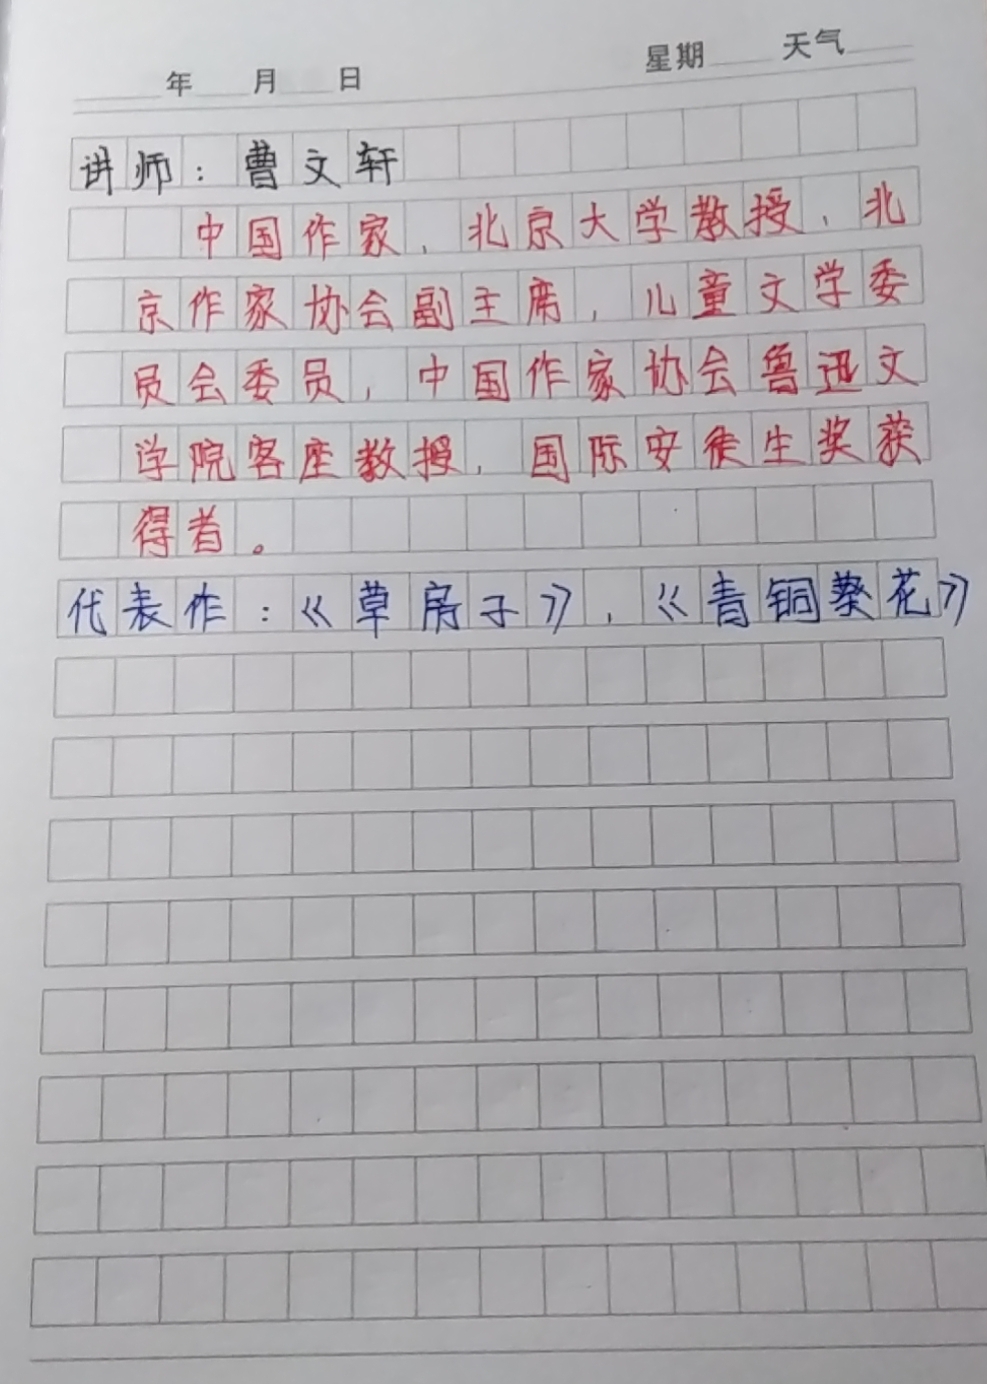 年 月 日 星期 天气
讲师：曹文轩
中国作家，北京大学教授，北
京作家协会副主席，儿童文学委
员会委员，中国作家协会鲁迅文
学院客座教授，国际安徒生奖获
得者。
代表作：《草房子》，《青铜葵花》